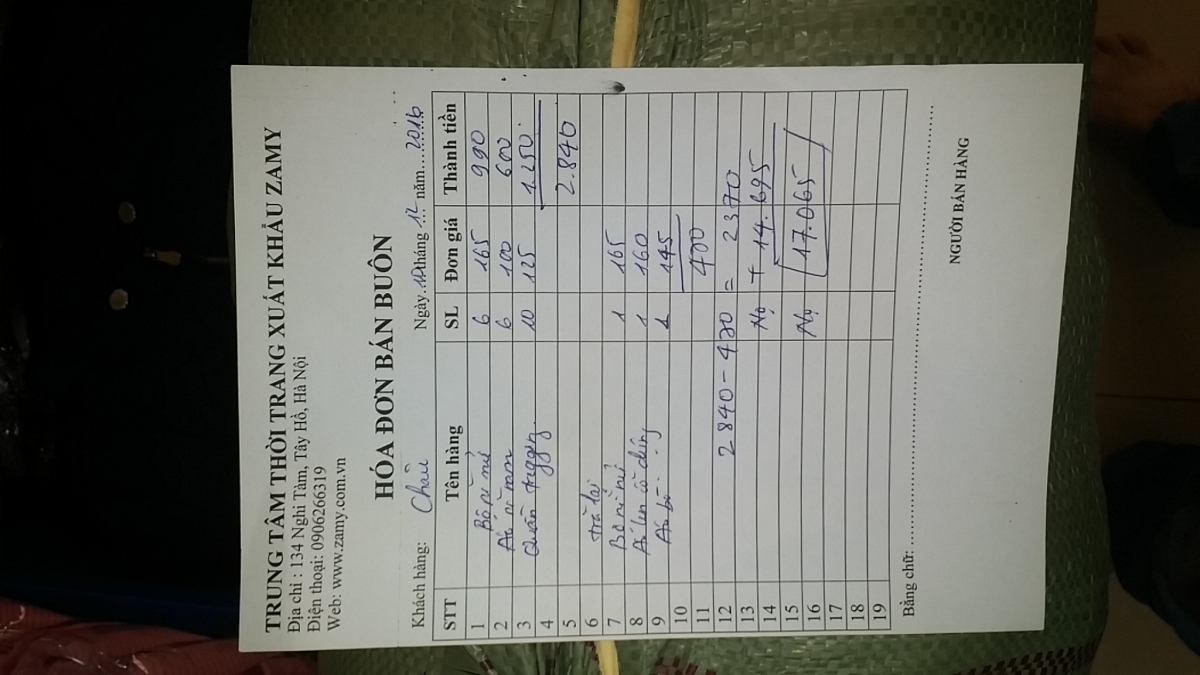 TRUNG TÂM THỜI TRANG XUẤT KHẨU ZAMY
Địa chỉ : 134 Nghi Tàm, Tây Hồ, Hà Nội
Điện thoại: 0906266319
Web: www.zamy.com.vn
HÓA ĐƠN BÁN BUÔN
Khách hàng: Châu Ngày tháng 12 năm 2016
STT Tên hàng SL Đơn giá Thành tiền
1 Bộ nỉ nữ 6 165 990
2 Áo nỉ 6 100 600
3 Quần 10 125 1.250
4
5 2.840
6 trả lại
7 Bộ nỉ nữ 1 165
8 Áo len cổ 1 160
9 Áo 1 145
10
11
12 2840 - = 2370
13 Nợ + 14.695
14
15 Nợ 17.065
16
17
18
19
Bằng chữ:
NGƯỜI BÁN HÀNG